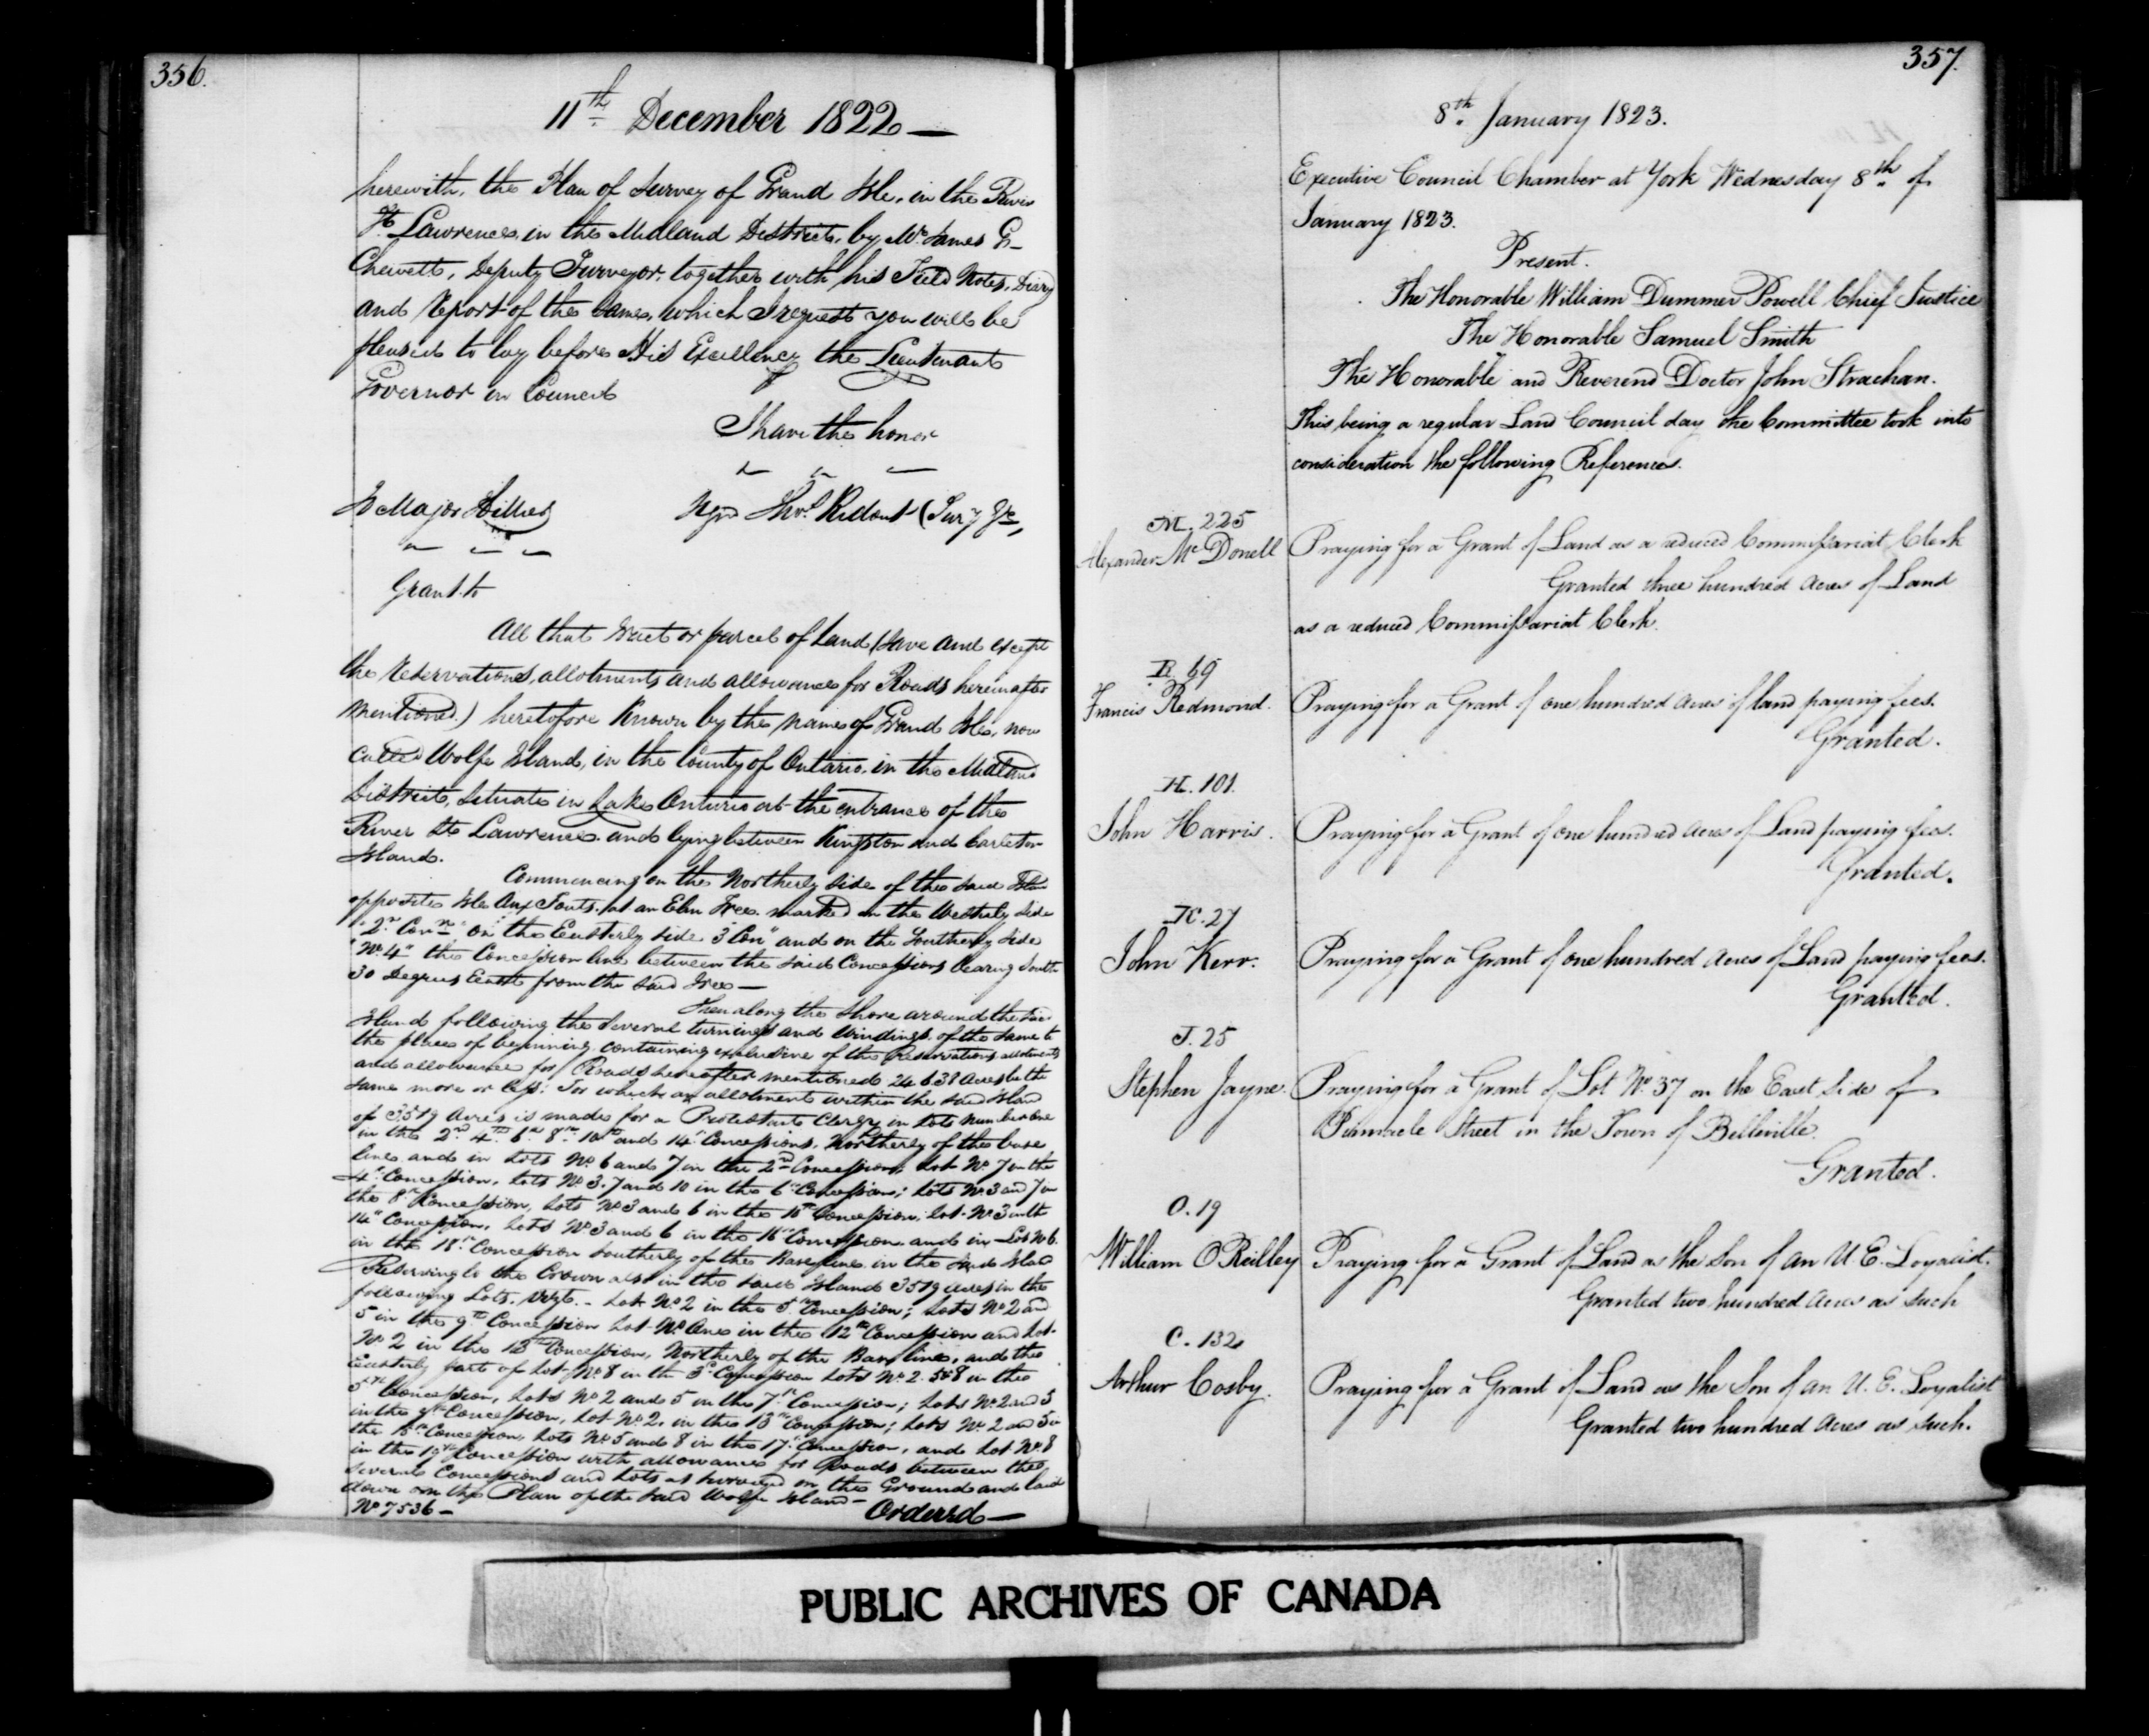 356.
11th December 1822—
herewith, the Plan of Survey of Grand Isle, in the River
St Lawrence, in the Midland District, by Mr James G-
Chewett, Deputy Surveyor, together with his Field Notes, Diary
and Report of the same, which I request you will be
pleased to lay before His Excellency the Lieutenant
Governor in Council
I have the honor
To Major Hillier
Signed Thos. Ridout (Surv Gl.
Grant to
All that tract or parcel of Land (save and except
the Reservations, allotments and allowances for Roads hereinafter
mentioned.) heretofore known by the name of Grand Isle, now
called Wolfe Island, in the County of Ontario, in the Midland
District, situate in Lake Ontario at the entrance of the
River St Lawrence and lying between Kingston and Carleton
Island.
Commencing on the Northerly side of the said Island
opposite Isle Aux Fouts, at an Elm Tree marked on the Westerly side
"2nd Conn" on the Easterly side "3 Con" and on the Southerly side
"No. 4" the Concession line between the said Concessions bearing South
30 Degrees East from the said Tree—
Then along the shore around the said
Island following the several turnings and windings of the same to
the place of beginning, containing exclusive of the Reservations allotments
and allowances for Roads hereafter mentioned 24638 Acres be the
same more or less: For which an allotment within the said Island
of 3519 Acres is made for a Protestant Clergy in Lots number one
in the 2nd 4th 6th 8th 10th and 14th Concessions, Northerly of the base
line and in Lots No. 6 and 7 in the 2nd Concession; Lot No. 7 in the
4th Concession, Lots No. 3. 7 and 10 in the 6th Concession; Lots No. 3 and 7 in
the 8th Concession, Lots No 3 and 6 in the 10th Concession; Lot No 3 in the
14th Concession, Lots No. 3 and 6 in the 16th Concession and in Lot No 6.
in the 18th Concession Southerly of the Base line in the said Island
Reserving to the Crown also in the said Island 3519 acres in the
following Lots, Vizt. - Lot No 2 in the 5th Concession; Lots No 2 and
5 in the 9th Concession Lot No. One in the 12th Concession and Lot
No 2 in the 13th Concession, Northerly of the Base line, and the
Easterly part of Lot No. 8 in the 3d Concession Lots No. 2. 5 & 8 in the
5th Concession, Lots No 2 and 5 in the 7th Concession; Lots No. 2 and 5
in the 9th Concession, Lot No. 2. in the 13th Concession; Lots No. 2 and 5 in
the 15th Concession, Lots No. 5 and 8 in the 17th Concession, and Lot No. 8
in the 19th Concession with allowances for Roads between the
several Concessions and Lots as surveyed on the Ground and laid
down on the Plan of the said Wolfe Island—
No 7536— Ordered—
357.
8th January 1823.
Executive Council Chamber at York Wednesday 8th of
January 1823.
Present.
The Honorable William Dummer Powell Chief Justice
The Honorable Samuel Smith
The Honorable and Reverend Doctor John Strachan.
This being a regular Land Council day the Committee took into
consideration the following References.
M. 225
Alexander McDonell Praying for a Grant of Land as a reduced Commissariat Clerk
Granted three hundred Acres of Land
as a reduced Commissariat Clerk.
R. 69
Francis Redmond. Praying for a Grant of one hundred acres of land paying fees.
Granted.
H. 101.
John Harris. Praying for a Grant of one hundred Acres of Land paying fees.
Granted.
K. 27
John Kerr. Praying for a Grant of one hundred Acres of Land paying fees.
Granted.
J. 25
Stephen Jayne. Praying for a Grant of Lot No. 37 on the East Side of
Pinnacle Street in the Town of Belleville.
Granted.
O. 19
William O'Reilley Praying for a Grant of Land as the Son of an U. E. Loyalist.
Granted two hundred Acres as such
C. 132
Arthur Cosby. Praying for a Grant of Land as the Son of an U. E. Loyalist
Granted two hundred Acres as such.
PUBLIC ARCHIVES OF CANADA